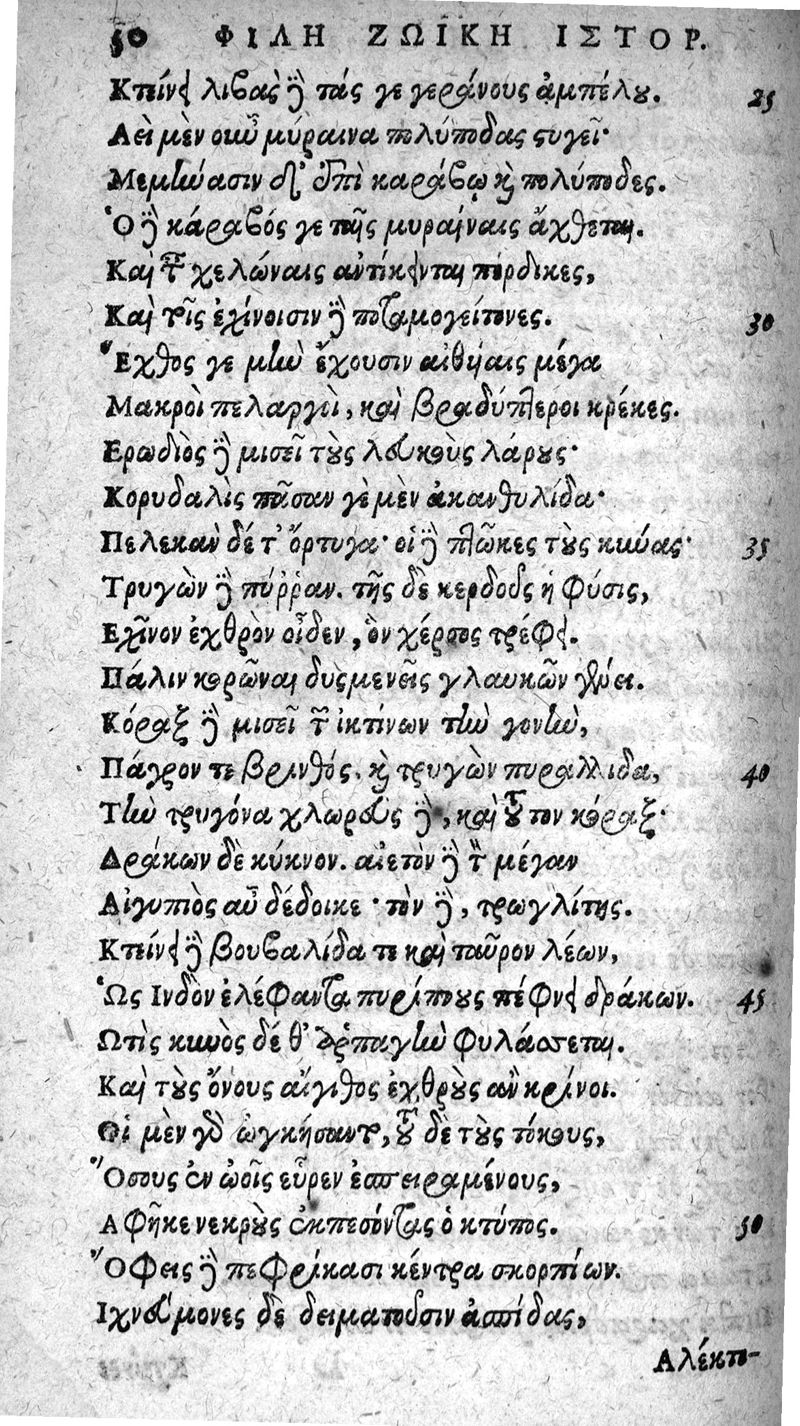 50 ΦΙΛΗ ΖΩΙΚΗ ΙΣΤΟΡ.
Κτείνει λιβὰς δὲ τάς γε γεράνους ἀμπέλου. 25
Αεὶ μὲν οιιῦ μύραινα πολύποδας στυγεῖ·
Μεμήνασιν δ' ἐπὶ καράβῳ καὶ πολύποδες.
Ὁ δὲ κάραβός γε ταῖς μυραίναις ἄχθεται.
Καὶ ταῖς χελώναις ἀντίκεινται πέρδικες,
Καὶ τοῖς ἐχίνοισιν δὲ ποταμογείτονες. 30
Ἔχθος γε μὴν ἔχουσιν αἰθυίαις μέγα
Μακροὶ πελαργοὶ, καὶ βραδύπτεροι κρέκες.
Ερωδιὸς δὲ μισεῖ τοὺς λευκοὺς λάρους·
Κορυδαλὶς πᾶσαν γὲ μὲν ἀκανθυλίδα·
Πελεκὰν δέ τ' ὄρτυγα· οἱ δὲ πτῶκες τοὺς κύνας· 35
Τρυγὼν δὲ πύῤῥαν. τῆς δὲ κερδοῦς ἡ φύσις,
Εχῖνον ἐχθρὸν οἶδεν, ὃν χέρσος τρέφει.
Πάλιν κορῶναι δυσμενεῖς γλαυκῶν γένει.
Κόραξ δὲ μισεῖ τῶν ἰκτίνων τὴν γονὴν,
Πάγρον τε βρινθός. καὶ τρυγὼν πυραλλιδα, 40
Τὴν τρυγόνα χλωρεύς δὲ, καὶ τοῦτον κόραξ·
Δράκων δὲ κύκνον. αἰετὸν δὲ τὸν μέγαν
Αἰγυπιὸς αὖ δέδοικε· τὸν δὲ, τρωγλίτης.
Κτείνει δὲ βουβαλίδα τε καὶ ταῦρον λέων,
Ὡς Ινδὸν ἐλέφαντα πυρίπους πέφνει δράκων. 45
Ωτὶς κυνὸς δέ θ' ἁρπαγὴν φυλάσσεται.
Καὶ τοὺς ὄνους αἴγιθος ἐχθροὺς ἂν κρίνοι.
Οἱ μὲν γὸ ὠγκήσαντο, τοῦ δὲ τοὺς τόκους,
Ὅσους ἐν ὠοῖς εὗρεν ἐσπειραμένους,
Αφῆκε νεκροὺς ἐκπεσόντας ὁ κτύπος. 50
Ὄφεις δὲ πεφρίκασι κέντρα σκορπίων.
Ιχνεύμονες δὲ δειματοῦσιν ἀσπίδας,
Αλέκτο-